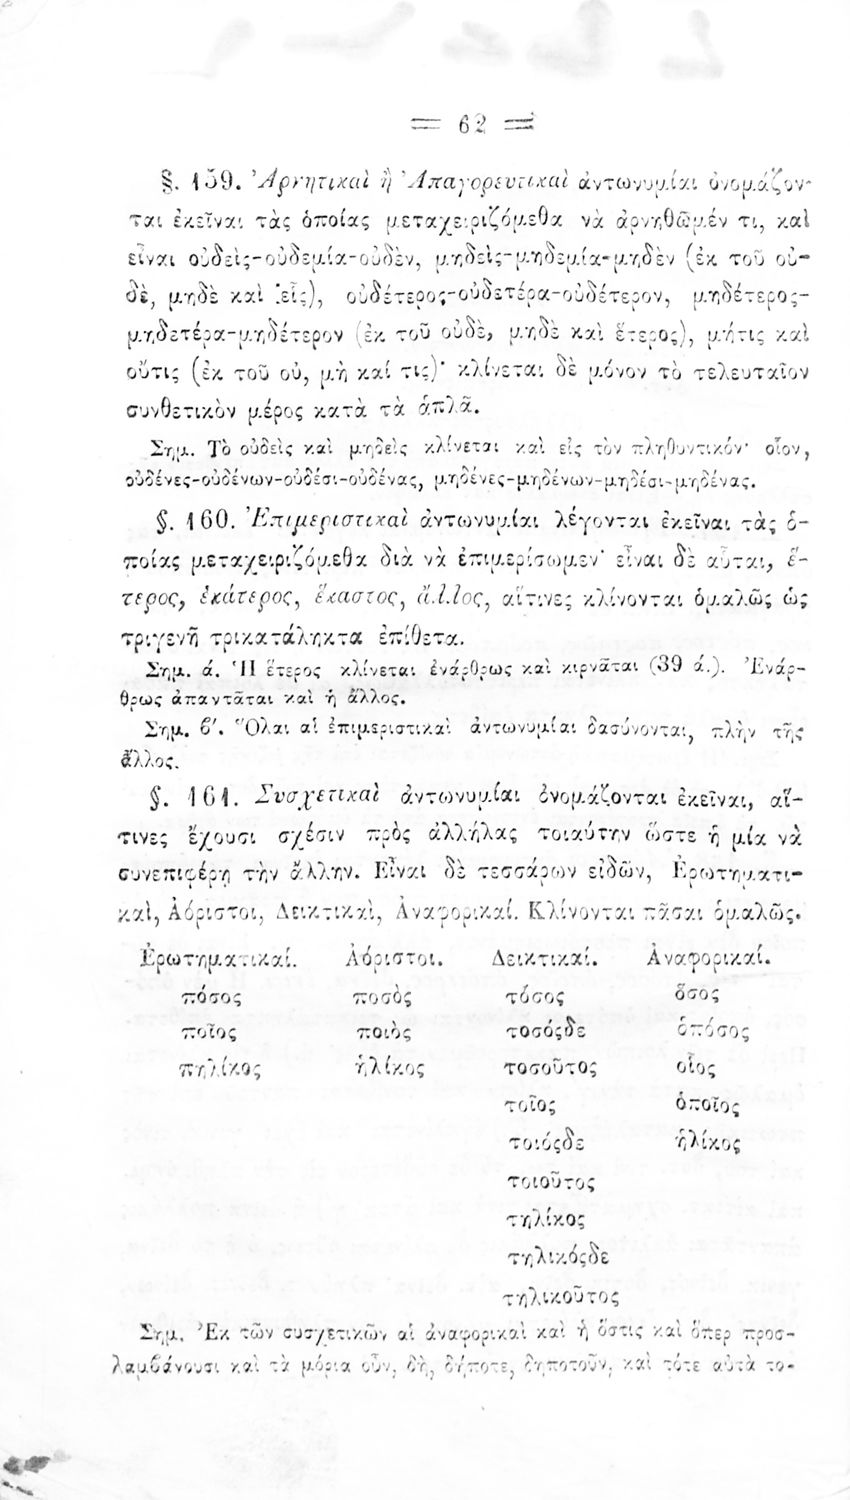 = 62 =
§. 159. Ἀρνητικαὶ ἢ Ἀπαγορευτικαὶ ἀντωνυμίαι ὀνομάζον-
ται ἐκεῖναι τὰς ὁποίας μεταχειριζόμεθα νὰ ἀρνηθῶμέν τι, καὶ
εἶναι οὐδεὶς-οὐδεμία-οὐδὲν, μηδεὶς-μηδεμία-μηδὲν (ἐκ τοῦ οὐ-
δὲ, μηδὲ καὶ εἷς), οὐδέτερος-οὐδετέρα-οὐδέτερον, μηδέτερος-
μηδετέρα-μηδέτερον (ἐκ τοῦ οὐδὲ, μηδὲ καὶ ἕτερος), μήτις καὶ
οὔτις (ἐκ τοῦ οὐ, μὴ καί τις)· κλίνεται δὲ μόνον τὸ τελευταῖον
συνθετικὸν μέρος κατὰ τὰ ἁπλᾶ.
Σημ. Τὸ οὐδεὶς καὶ μηδεὶς κλίνεται καὶ εἰς τὸν πληθυντικόν· οἷον,
οὐδένες-οὐδένων-οὐδέσι-οὐδένας, μηδένες-μηδένων-μηδέσι-μηδένας.
§. 160. Ἐπιμεριστικαὶ ἀντωνυμίαι λέγονται ἐκεῖναι τὰς ὁ-
ποίας μεταχειριζόμεθα διὰ νὰ ἐπιμερίσωμεν· εἶναι δὲ αὗται, ἕ-
τερος, ἑκάτερος, ἕκαστος, ἄλλος, αἵτινες κλίνονται ὁμαλῶς ὡς
τριγενῆ τρικατάληκτα ἐπίθετα.
Σημ. ά. Ἡ ἕτερος κλίνεται ἐνάρθρως καὶ κιρνᾶται (39 ά.). Ἐνάρ-
θρως ἀπαντᾶται καὶ ἡ ἄλλος.
Σημ. ϐ'. Ὅλαι αἱ ἐπιμεριστικαὶ ἀντωνυμίαι δασύνονται, πλὴν τῆς
ἄλλος.
§. 161. Συσχετικαὶ ἀντωνυμίαι ὀνομάζονται ἐκεῖναι, αἵ-
τινες ἔχουσι σχέσιν πρὸς ἀλλήλας τοιαύτην ὥστε ἡ μία νὰ
συνεπιφέρῃ τὴν ἄλλην. Εἶναι δὲ τεσσάρων εἰδῶν, Ἐρωτηματι-
καὶ, Ἀόριστοι, Δεικτικαὶ, Ἀναφορικαί. Κλίνονται πᾶσαι ὁμαλῶς.
Ἐρωτηματικαί. Ἀόριστοι. Δεικτικαί. Ἀναφορικαί.
πόσος ποσὸς τόσος ὅσος
ποῖος ποιὸς τοσόςδε ὁπόσος
πηλίκος ἡλίκος τοσοῦτος οἷος
τοῖος ὁποῖος
τοιόςδε ἡλίκος
τοιοῦτος
τηλίκος
τηλικόςδε
τηλικοῦτος
Σημ. Ἐκ τῶν συσχετικῶν αἱ ἀναφορικαὶ καὶ ἡ ὅστις καὶ ὅπερ προσ-
λαμϐάνουσι καὶ τὰ μόρια οὖν, δὴ, δήποτε, δηποτοῦν, καὶ τότε αὐτὰ το-